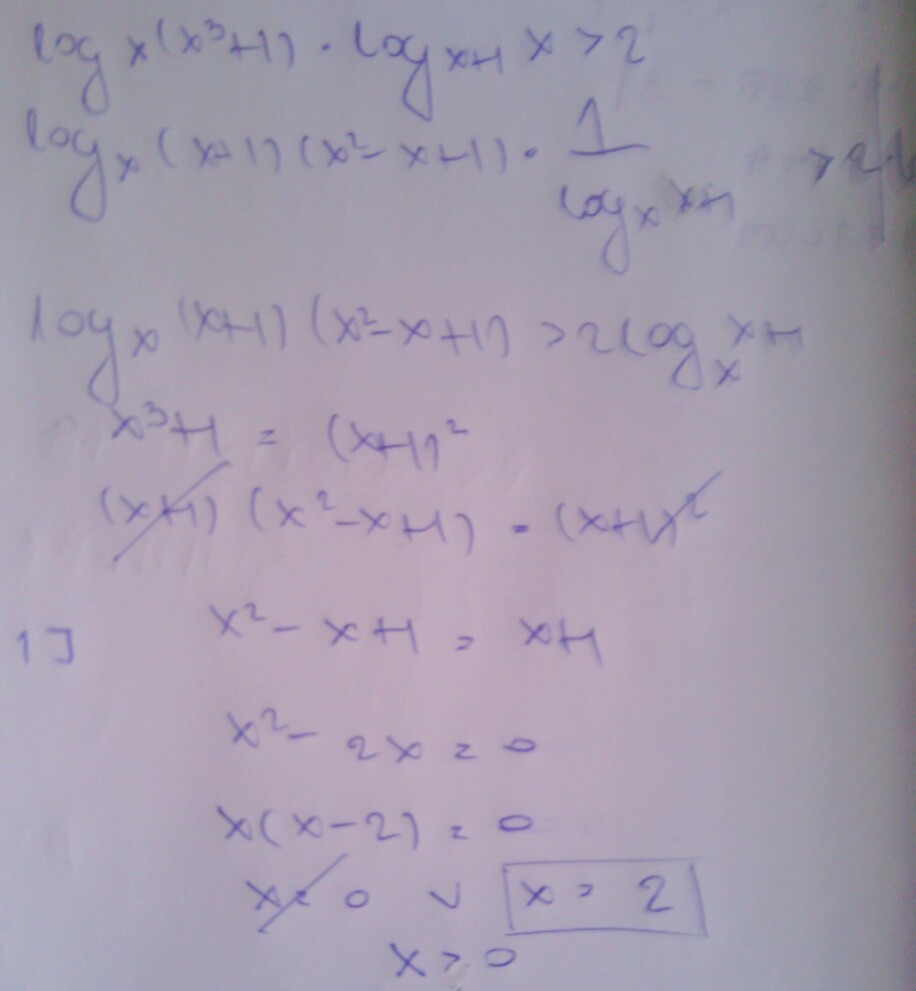 log_x(x³+1) · log_{x+1} x > 2
log_x (x+1)(x²-x+1) · 1/(log_x x+1) > 2 /
log_x (x+1)(x²-x+1) > 2log_x x+1
x³+1 = (x+1)²
(x+1)(x²-x+1) = (x+1)²
1] x²-x+1 = x+1
x²-2x = 0
x(x-2) = 0
x = 0 v x = 2
x > 0